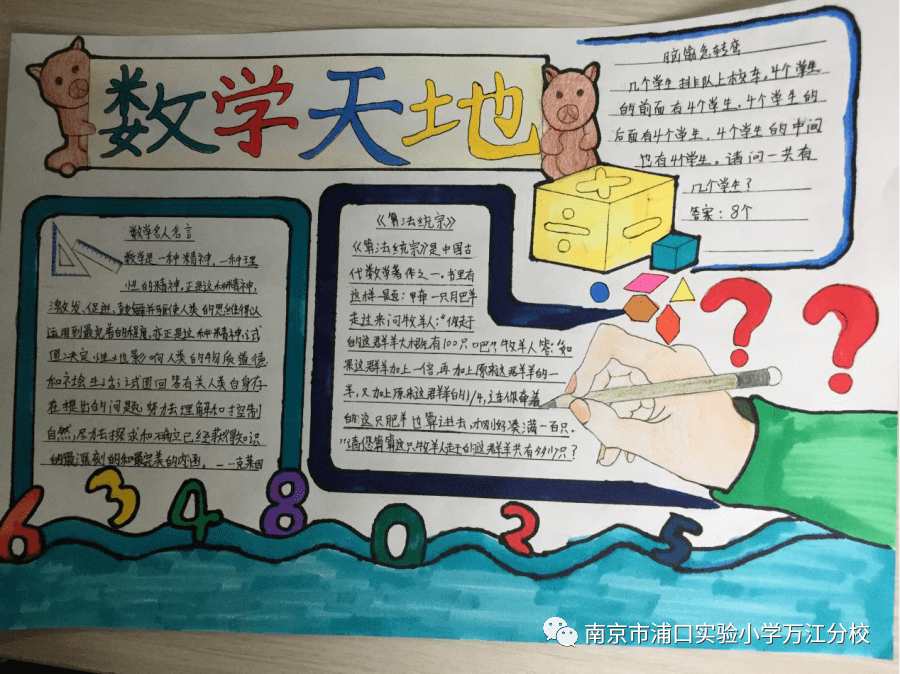 数学天地
脑筋急转弯
几个学生排队上校车，4个学生
的前面有4个学生，4个学生的
后面有4个学生，4个学生的中间
也有4个学生。请问一共有
几个学生？
答案：8个
数学名人名言
数学是一种精神，一种理
性的精神。正是这种精神，
激发、促进、鼓舞并驱使人类的思维得以
运用到最完善的程度，亦正是这种精神，试
图决定性地影响人类的物质道德
和社会生活；试图回答有关人类自身存
在提出的问题；努力去理解和控制
自然；尽力去探求和确立已经获得知识
的最深刻的和最完美的内涵。——克莱因
《算法统宗》
《算法统宗》是中国古
代数学著作之一。书里有
这样一题：甲牵一只肥羊
走过来问牧羊人：“你赶
的这群羊大概有100只吧？”牧羊人答：“如
果这群羊加上一倍，再加上原来这群羊的一
半，又加上原来这群羊的1/4，连你牵着
的这只肥羊也算进去，才刚好凑满一百只。
”请您算算这只牧羊人赶的这群羊共有多少只？
6 3 4 8 0 2 5
? ?
南京市浦口实验小学万江分校